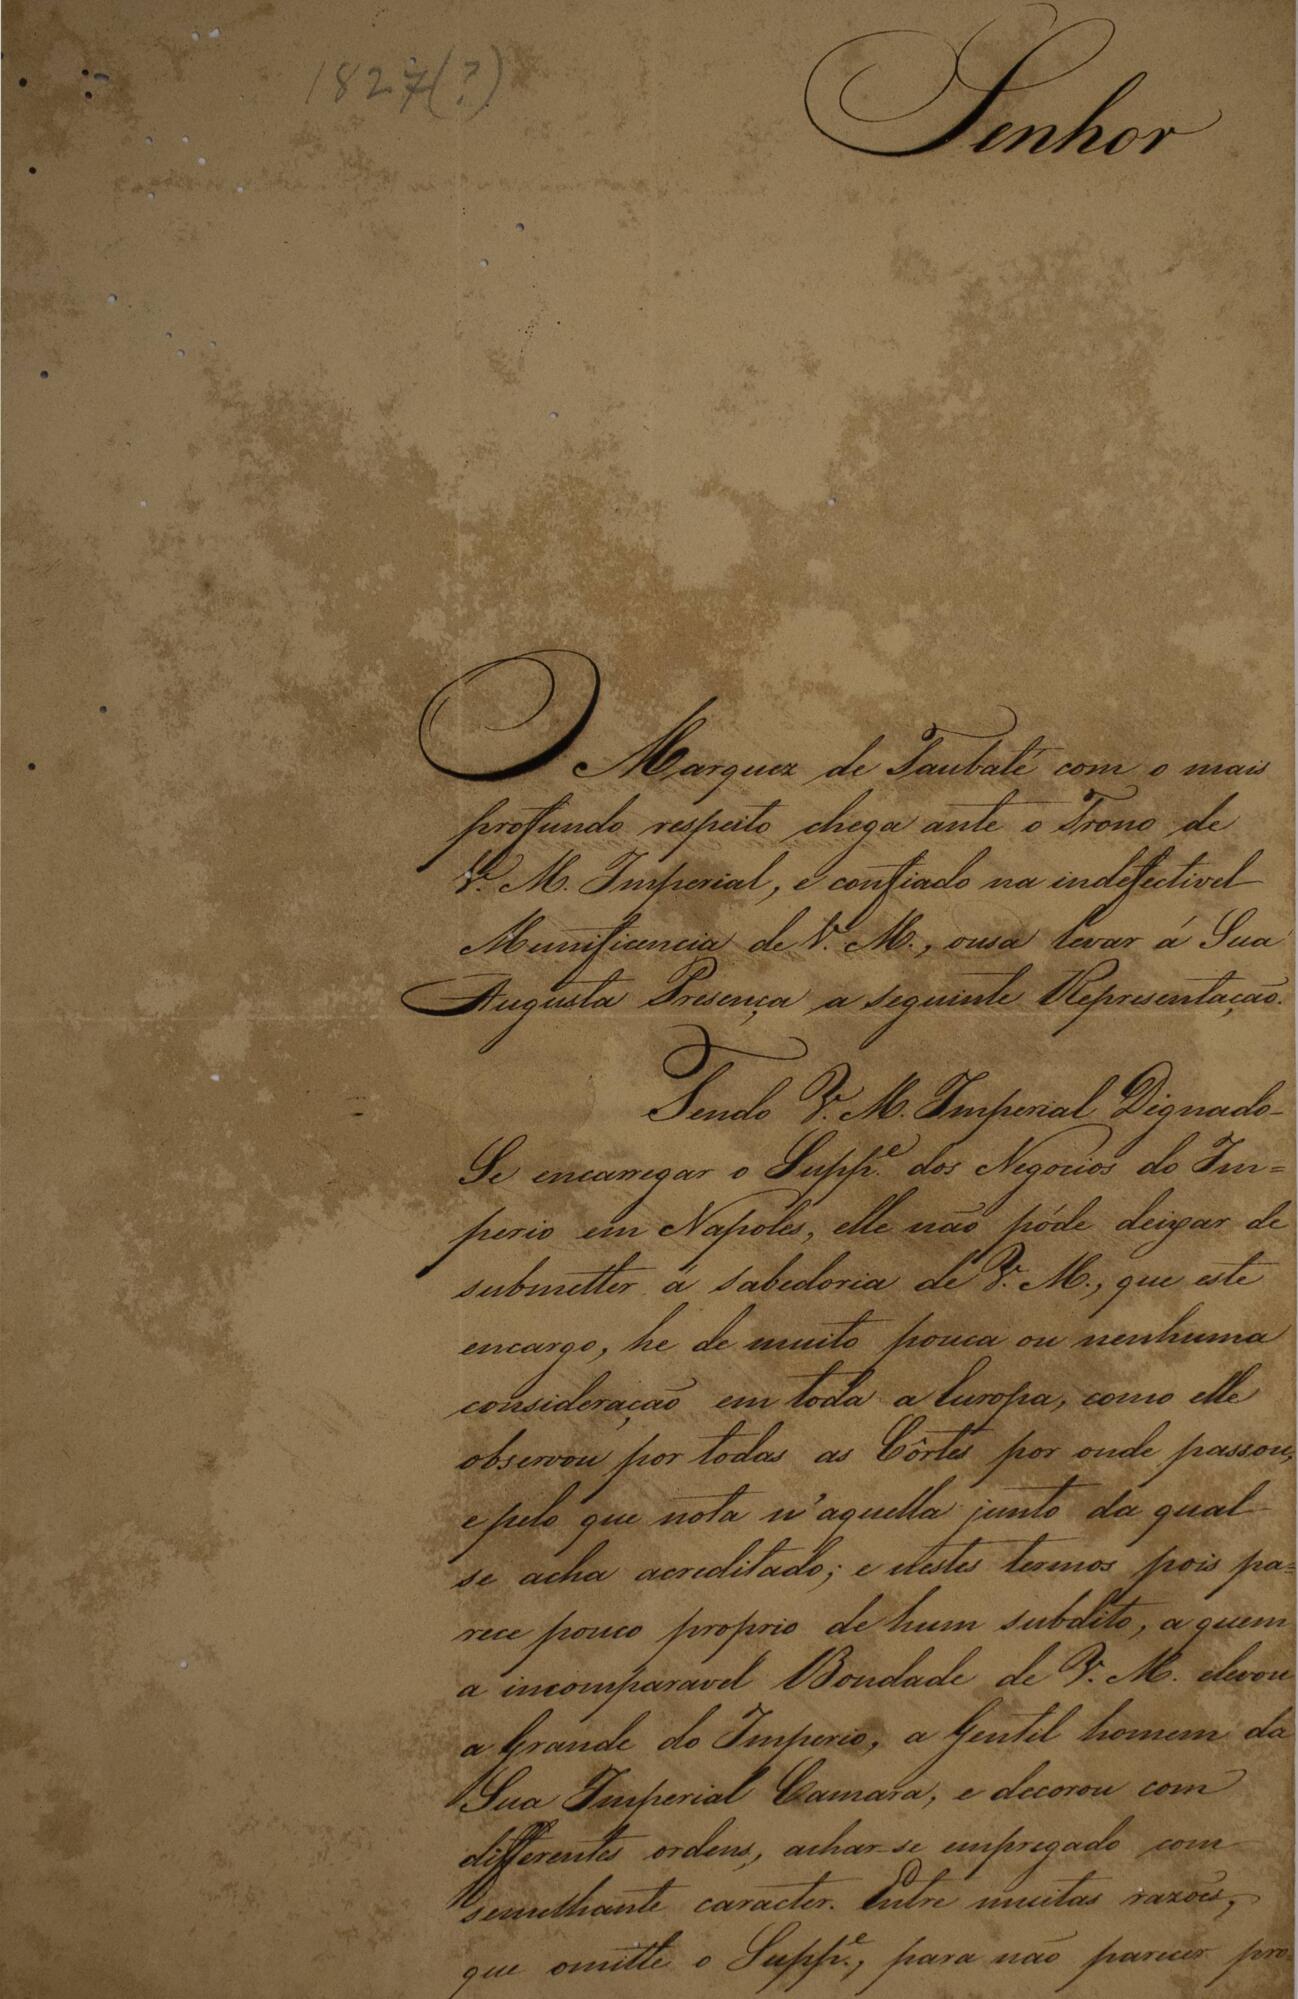 1827(?)
Senhor
O Marquez de Taubaté com o mais
profundo respeito chega ante o Trono de
V. M. Imperial, e confiado na indefectivel
Munificencia de V. M., ousa levar á Sua
Augusta Presença a seguinte Representação.
Tendo V. M. Imperial Dignado-
Se encarregar o Supp.e dos Negocios do Im=
perio em Napoles, elle não póde deixar de
submetter á sabedoria de V. M., que este
encargo, he de muito pouca ou nenhuma
consideração em toda a Europa, como elle
observou por todas as Côrtes por onde passou,
e pelo que nota n'aquella junto da qual
se acha acreditado; e nestes termos pois pa=
rece pouco proprio de hum subdito, a quem
a incomparavel Bondade de V. M. elevou
a Grande do Imperio, a Gentil homem da
Sua Imperial Camara, e decorou com
differentes ordens, achar-se empregado com
semelhante caracter. Entre muitas razões,
que omitte o Supp.e, para não parecer pro-